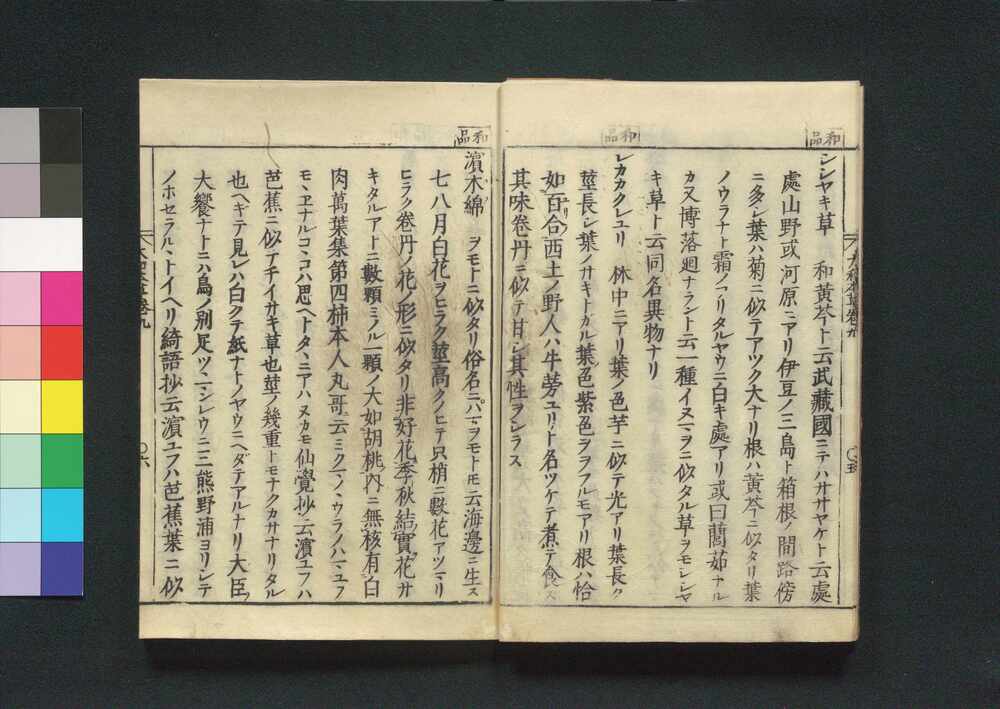 和品
シシヤキ草 和黄芩ト云武藏國ニテハサササヤケト云處
處山野或河原ニアリ伊豆ノ三島ト箱根ノ間路傍
ニ多シ葉ハ菊ニ似テアツク大ナリ根ハ黄芩ニ似タリ葉
ノウラナト霜ノフリタルヤウニ白キ處アリ或曰䕡茹ナル
カ又博落廻ナラント云一種イヌマヲニ似タル草ヲモシシヤ
キ草ト云同名異物ナリ
和品
レカカクレユリ 林中ニアリ葉ノ色芋ニ似テ光アリ葉長ク
莖長シ葉ノサキトガル葉色紫色ヲヲフルモアリ根ハ恰
如百合西土ノ野人ハ牛蒡ユリト名ツケテ煮テ食ス
其味卷丹ニ似テ甘シ其性ヲシラス
和品
濱木綿 ヲモトニ似タリ俗名ハマヲモトモ云海邊ニ生ス
七八月白花ヲヒラク莖高クノヒテ只梢ニ數花アツマリ
ヒラク卷丹ノ花ノ形ニ似タリ非好花季秋結實花サ
キタルアトニ數顆ミノル一顆ノ大如胡桃内ニ無核有白
肉萬葉集第四柿本人丸哥云ミクマノヽウラノハマユフ
モヽヱナルコヽロハ思ヘトタヽニアハヌカモ仙覺抄云濱ユフハ
芭蕉ニ似テチイサキ草也莖ノ幾重トモナクカサナリタル
也ヘキテ見レハ白クテ紙ナトノヤウニヘダテアルナリ大臣ノ
大饗ナトニハ鳥ノ別足ツヽマンレウニ三熊野浦ヨリシテ
ノホセラルヽトイヘリ綺語抄云濱ユフハ芭蕉葉ニ似